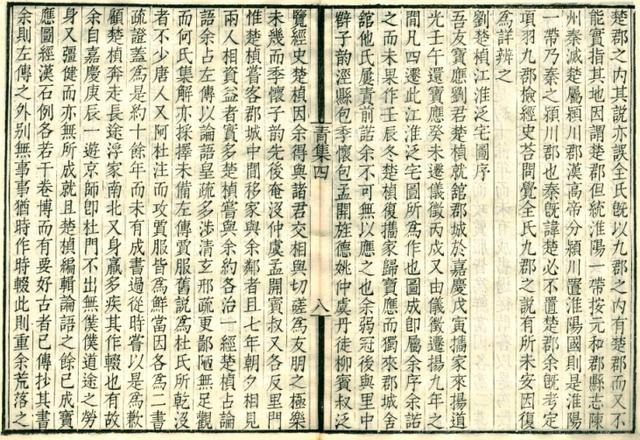 楚郡之內其說亦誤全氏旣以九郡之內有楚郡而又不
能實指其地因謂楚郡但統淮陽一帶按元和郡縣志陳
州秦滅楚屬潁川郡漢高帝分潁川置淮陽國則是淮陽
一帶乃秦之潁川郡也秦旣諱楚必不置楚郡余旣考定
項羽九郡檢經史荅問覺全氏九郡之說有所未安因復
為詳辨之
劉楚楨江淮泛宅圖序
吾友寶應劉君楚楨就館郡城於嘉慶戊寅攜家來揚道
光壬午還寶應癸未遷儀徵丙戌又由儀徵遷揚九年之
間凡四遷此江淮泛宅圖所爲作也圖成卽屬余序余諾
之而未果作壬辰冬楚楨復攜家歸寶應而獨來郡城舍
館他氏屢責前諾余不可無以應之也余弱冠後與里中
辥子韵涇縣包季懷包孟開旌德姚仲虞丹徒柳賓叔泛
青集四
八
覽經史楚楨因余得與諸君交相與切磋為友朋之極樂
未幾而季懷子韵先後奄沒仲虞孟開賓叔又各反里門
惟楚楨嘗客郡城中間移家與余鄰者且七年朝夕相見
兩人相資益者實多楚楨嘗與余約各治一經楚楨占論
語余占左傳以論語皇疏多涉淸玄邢疏更鄙陋無足觀
而何氏集解亦採擇未備左傳賈服舊說為杜氏所乾沒
者不少唐人又阿杜注而攻賈服皆為鮮當因各為二書
疏證蓋爲是約十餘年而未有成書過從時嘗以是為歉
余自嘉慶庚辰一遊京師卽杜門不出無僕僕道途之勞
顧楚楨奔走長途浮家南北又身羸多疾其作輟也有故余
身又彊健而亦無所成就且楚楨編輯論語之餘已成寶
應圖經漢石例各若干卷博而有要好古者已傳抄其書
余則左傳之外別無事事猶時作時輟此則重余荒落之